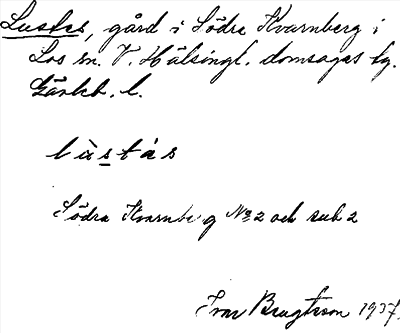 Lustas, gård i Södra Kvarnberg i
Los sn. V. Hälsingl. domsagas tg.
Gävleb. l.
lùstás
Södra Kvarnbe g No 2 och sub 2
Ivar Bengtsson 1937.